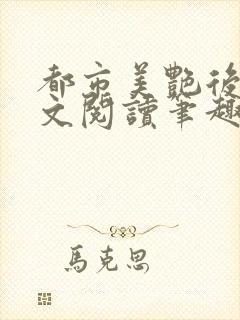 都市美艷後
文閱讀筆趣
馬克思